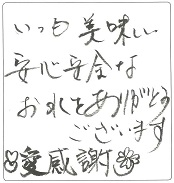 いつも美味しい
安心安全な
おれしをありがとう
ございます
愛感謝